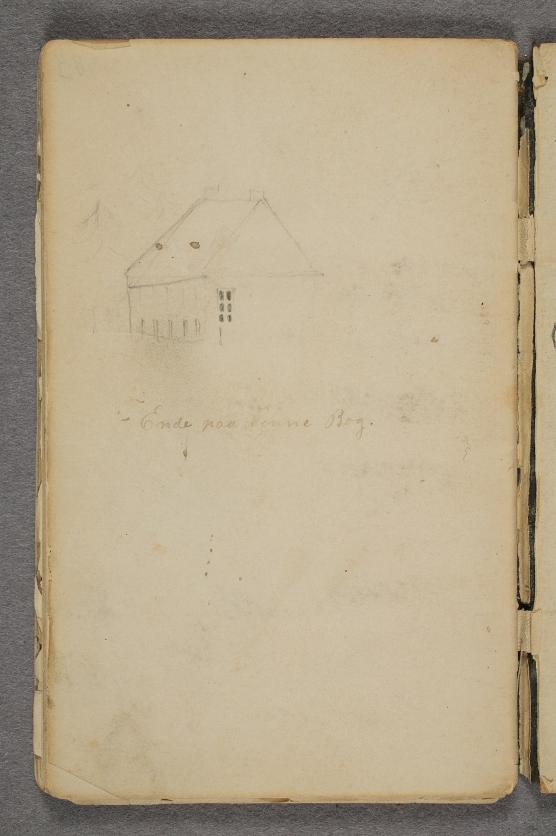 Ende paa denne Bog.